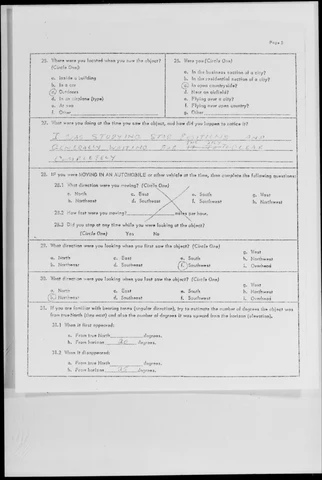 Page 2
25. Where were you located when you saw the object?
(Circle One)
a. Inside a building
b. In a car
c. Outdoors
d. In an airplane (type)
e. At sea
f. Other
26. Were you (Circle One)
a. In the business section of a city?
b. In the residential section of a city?
c. In open countryside?
d. Near an airfield?
e. Flying over a city?
f. Flying over open country?
g. Other
27. What were you doing at the time you saw the object, and how did you happen to notice it?
I WAS STUDYING STAR POSITIONS AND
GENERALLY
COMPLETELY
28. IF you were MOVING IN AN AUTOMOBILE or other vehicle at the time, then complete the following questions:
28.1 What direction were you moving? (Circle One)
a. North c. East e. South g. West
b. Northeast d. Southeast f. Southwest h. Northwest
28.2 How fast were you moving? miles per hour.
28.3 Did you stop at any time while you were looking at the object?
(Circle One) Yes No
29. What direction were you looking when you first saw the object? (Circle One)
g. West
a. North c. East e. South h. Northwest
b. Northeast d. Southeast f. Southwest i. Overhead
30. What direction were you looking when you last saw the object? (Circle One)
g. West
a. North c. East e. South h. Northwest
b. Northeast d. Southeast f. Southwest i. Overhead
31. If you are familiar with bearing terms (angular direction), try to estimate the number of degrees the object was
from true North (thru east) and also the number of degrees it was upward from the horizon (elevation).
31.1 When it first appeared:
a. From true North degrees.
b. From horizon degrees.
31.2 When it disappeared:
a. From true North degrees.
b. From horizon degrees.